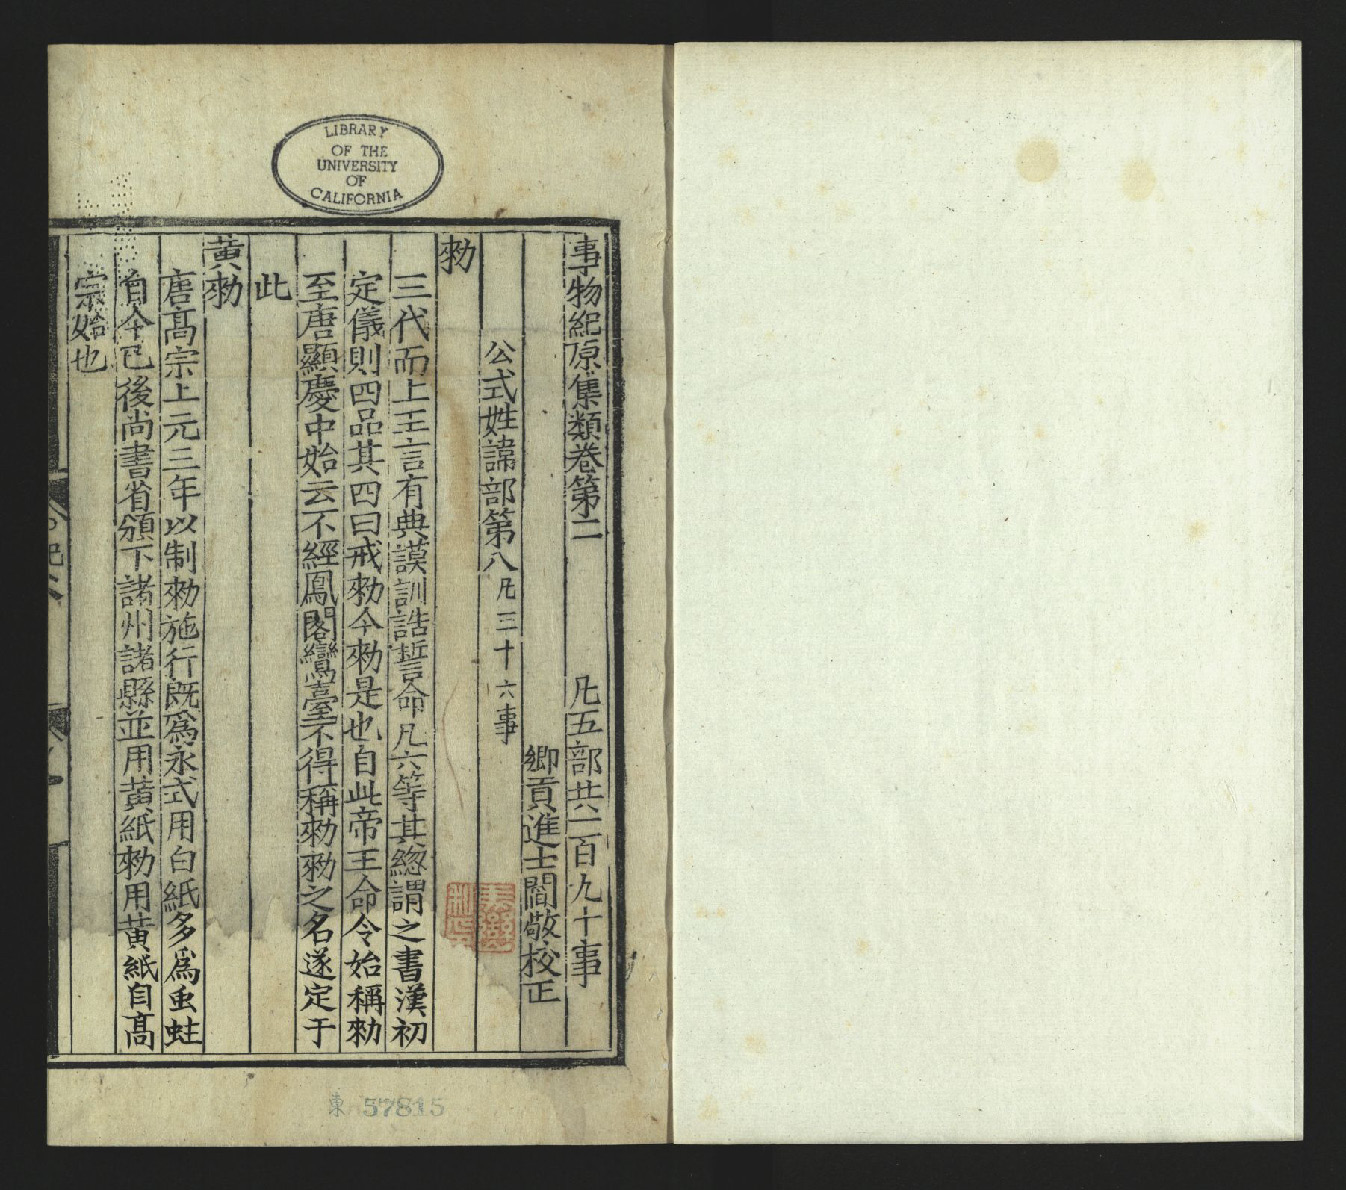 LIBRARY
OF THE
UNIVERSITY
OF
CALIFORNIA
事物紀原集類卷第二 凡五部共一百九十事
鄉貢進士閻敬校正
公式姓諱部第八凡三十六事
勑
三代而上王言有典謨訓誥誓命凡六等其緫謂之書漢初
定儀則四品其四曰戒勑今勑是也自此帝王命令始稱勑
至唐顯慶中始云不經鳳閣鸞臺不得稱勑勑之名遂定于
此
黃勑
唐髙宗上元三年以制勑施行既爲永式用白紙多爲虫蛀
自今已後尚書省頒下諸州諸縣並用黃紙勑用黃紙自髙
宗始也
東 57815